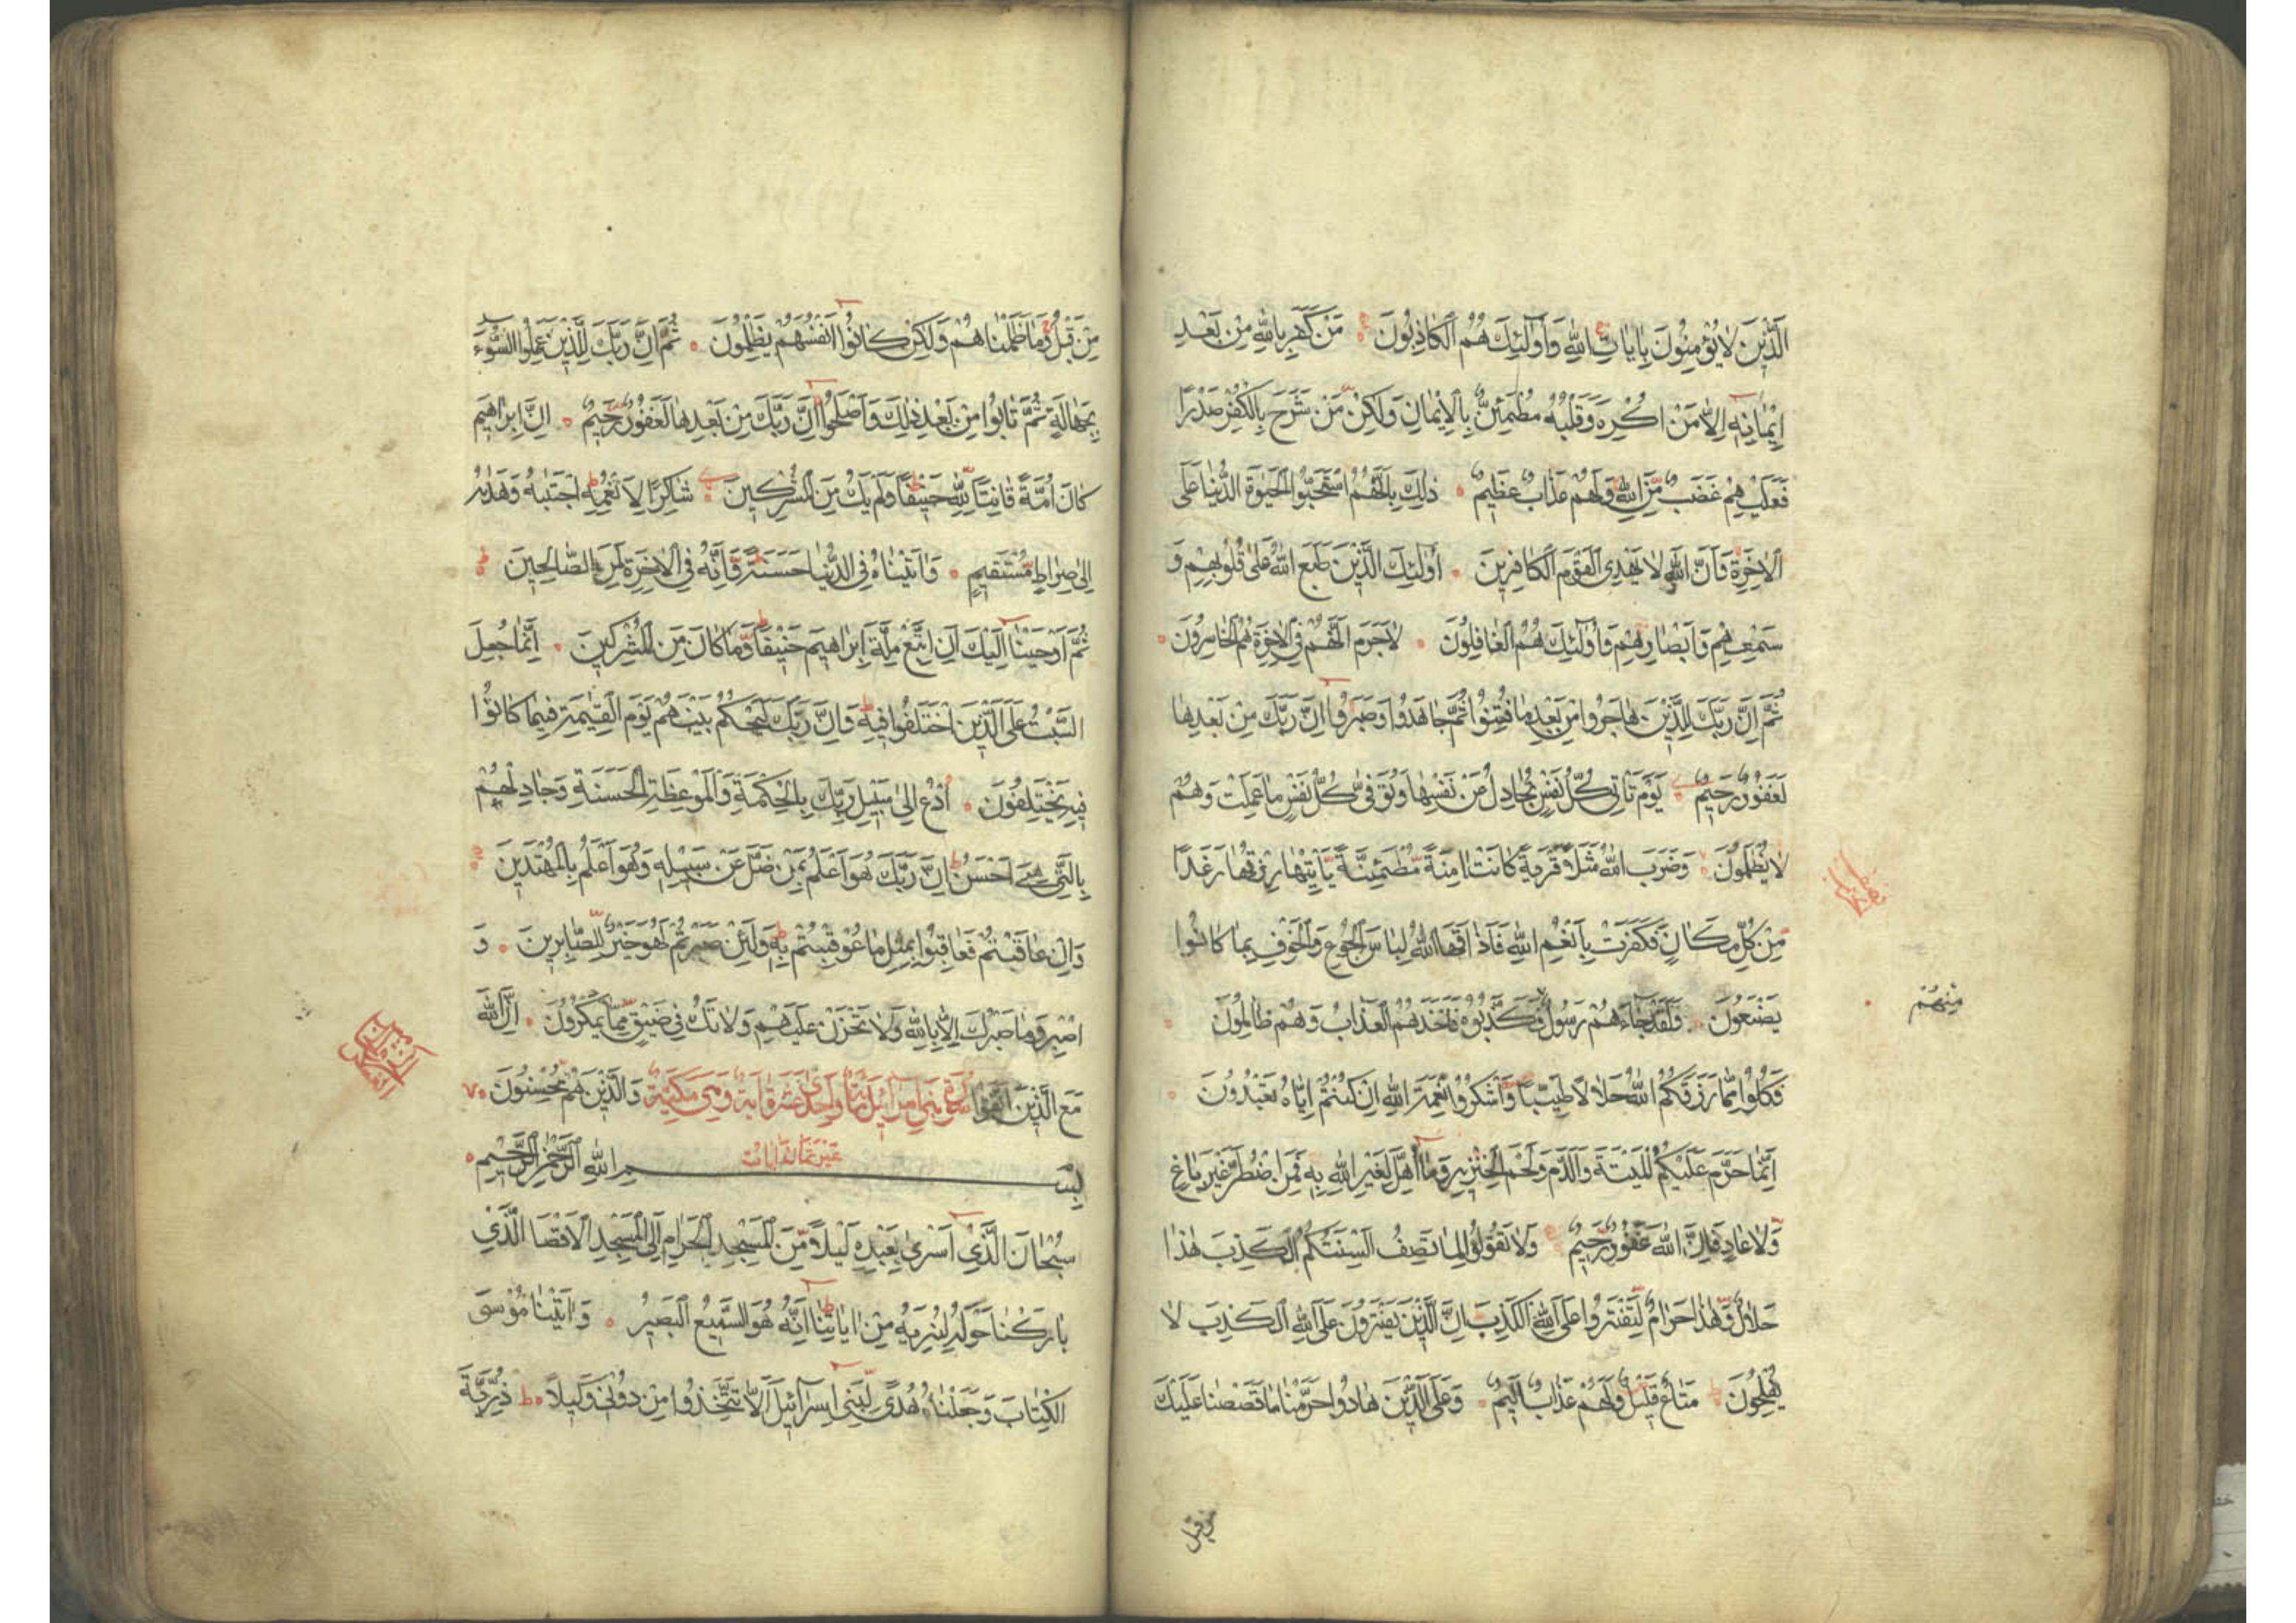 الَّذِينَ لَا يُؤْمِنُونَ بِاٰيَاتِ اللّٰهِ وَاُولٰئِكَ هُمُ الْكَاذِبُونَ مَنْ كَفَرَ بِاللّٰهِ مِنْ بَعْدِ
اِيْمَانِهٖ اِلَّا مَنْ اُكْرِهَ وَقَلْبُهُ مُطْمَئِنٌّ بِالْاِيْمَانِ وَلٰكِنْ مَنْ شَرَحَ بِالْكُفْرِ صَدْرًا
فَعَلَيْهِمْ غَضَبٌ مِّنَ اللّٰهِ وَلَهُمْ عَذَابٌ عَظِيمٌ ذٰلِكَ بِاَنَّهُمُ اسْتَحَبُّوا الْحَيٰوةَ الدُّنْيَا عَلَى
الْاٰخِرَةِ وَاَنَّ اللّٰهَ لَا يَهْدِي الْقَوْمَ الْكَافِرِينَ اُولٰئِكَ الَّذِينَ طَبَعَ اللّٰهُ عَلٰى قُلُوبِهِمْ وَ
سَمْعِهِمْ وَاَبْصَارِهِمْ وَاُولٰئِكَ هُمُ الْغَافِلُونَ لَا جَرَمَ اَنَّهُمْ فِي الْاٰخِرَةِ هُمُ الْخَاسِرُونَ
ثُمَّ اِنَّ رَبَّكَ لِلَّذِينَ هَاجَرُوا مِنْ بَعْدِ مَا فُتِنُوا ثُمَّ جَاهَدُوا وَصَبَرُوا اِنَّ رَبَّكَ مِنْ بَعْدِهَا
لَغَفُورٌ رَّحِيمٌ يَوْمَ تَاْتِي كُلُّ نَفْسٍ تُجَادِلُ عَنْ نَفْسِهَا وَتُوَفّٰى كُلُّ نَفْسٍ مَا عَمِلَتْ وَهُمْ
لَا يُظْلَمُونَ وَضَرَبَ اللّٰهُ مَثَلًا قَرْيَةً كَانَتْ اٰمِنَةً مُّطْمَئِنَّةً يَّاْتِيْهَا رِزْقُهَا رَغَدًا
مِّنْ كُلِّ مَكَانٍ فَكَفَرَتْ بِاَنْعُمِ اللّٰهِ فَاَذَاقَهَا اللّٰهُ لِبَاسَ الْجُوعِ وَالْخَوْفِ بِمَا كَانُوا
يَصْنَعُونَ وَلَقَدْ جَاءَهُمْ رَسُولٌ فَكَذَّبُوهُ فَاَخَذَهُمُ الْعَذَابُ وَهُمْ ظَالِمُونَ
مِنْهُمْ
فَكُلُوا مِمَّا رَزَقَكُمُ اللّٰهُ حَلَالًا طَيِّبًا وَّاشْكُرُوا نِعْمَةَ اللّٰهِ اِنْ كُنْتُمْ اِيَّاهُ تَعْبُدُونَ
اِنَّمَا حَرَّمَ عَلَيْكُمُ الْمَيْتَةَ وَالدَّمَ وَلَحْمَ الْخِنْزِيرِ وَمَا اُهِلَّ لِغَيْرِ اللّٰهِ بِهٖ فَمَنِ اضْطُرَّ غَيْرَ بَاغٍ
وَّلَا عَادٍ فَاِنَّ اللّٰهَ غَفُورٌ رَّحِيمٌ وَلَا تَقُولُوا لِمَا تَصِفُ اَلْسِنَتُكُمُ الْكَذِبَ هٰذَا
حَلَالٌ وَّهٰذَا حَرَامٌ لِّتَفْتَرُوا عَلَى اللّٰهِ الْكَذِبَ اِنَّ الَّذِينَ يَفْتَرُونَ عَلَى اللّٰهِ الْكَذِبَ لَا
يُفْلِحُونَ مَتَاعٌ قَلِيلٌ وَّلَهُمْ عَذَابٌ اَلِيمٌ وَعَلَى الَّذِينَ هَادُوا حَرَّمْنَا مَا قَصَصْنَا عَلَيْكَ
من قبل
مِنْ قَبْلُ وَمَا ظَلَمْنَاهُمْ وَلٰكِنْ كَانُوا اَنْفُسَهُمْ يَظْلِمُونَ ثُمَّ اِنَّ رَبَّكَ لِلَّذِينَ عَمِلُوا السُّوءَ
بِجَهَالَةٍ ثُمَّ تَابُوا مِنْ بَعْدِ ذٰلِكَ وَاَصْلَحُوا اِنَّ رَبَّكَ مِنْ بَعْدِهَا لَغَفُورٌ رَّحِيمٌ اِنَّ اِبْرَاهِيمَ
كَانَ اُمَّةً قَانِتًا لِّلّٰهِ حَنِيفًا وَلَمْ يَكُ مِنَ الْمُشْرِكِينَ شَاكِرًا لِاَنْعُمِهِ اجْتَبٰهُ وَهَدٰهُ
اِلٰى صِرَاطٍ مُّسْتَقِيمٍ وَاٰتَيْنَاهُ فِي الدُّنْيَا حَسَنَةً وَّاِنَّهُ فِي الْاٰخِرَةِ لَمِنَ الصَّالِحِينَ
ثُمَّ اَوْحَيْنَا اِلَيْكَ اَنِ اتَّبِعْ مِلَّةَ اِبْرَاهِيمَ حَنِيفًا وَّمَا كَانَ مِنَ الْمُشْرِكِينَ اِنَّمَا جُعِلَ
السَّبْتُ عَلَى الَّذِينَ اخْتَلَفُوا فِيهِ وَاِنَّ رَبَّكَ لَيَحْكُمُ بَيْنَهُمْ يَوْمَ الْقِيٰمَةِ فِيمَا كَانُوا
فِيهِ يَخْتَلِفُونَ اُدْعُ اِلٰى سَبِيلِ رَبِّكَ بِالْحِكْمَةِ وَالْمَوْعِظَةِ الْحَسَنَةِ وَجَادِلْهُمْ
بِالَّتِي هِيَ اَحْسَنُ اِنَّ رَبَّكَ هُوَ اَعْلَمُ بِمَنْ ضَلَّ عَنْ سَبِيلِهٖ وَهُوَ اَعْلَمُ بِالْمُهْتَدِينَ
وَاِنْ عَاقَبْتُمْ فَعَاقِبُوا بِمِثْلِ مَا عُوْقِبْتُمْ بِهٖ وَلَئِنْ صَبَرْتُمْ لَهُوَ خَيْرٌ لِّلصَّابِرِينَ وَ
اصْبِرْ وَمَا صَبْرُكَ اِلَّا بِاللّٰهِ وَلَا تَحْزَنْ عَلَيْهِمْ وَلَا تَكُ فِي ضَيْقٍ مِّمَّا يَمْكُرُونَ اِنَّ اللّٰهَ
مَعَ الَّذِينَ اتَّقَوْا وَالَّذِينَ هُمْ مُحْسِنُونَ
سورة بني اسرائيل مائة واحدى عشرة اية وهي مكية
غير ثمان ايات
بِسْمِ اللّٰهِ الرَّحْمٰنِ الرَّحِيمِ
سُبْحَانَ الَّذِي اَسْرٰى بِعَبْدِهٖ لَيْلًا مِّنَ الْمَسْجِدِ الْحَرَامِ اِلَى الْمَسْجِدِ الْاَقْصَا الَّذِي
بَارَكْنَا حَوْلَهُ لِنُرِيَهُ مِنْ اٰيَاتِنَا اِنَّهُ هُوَ السَّمِيعُ الْبَصِيرُ وَاٰتَيْنَا مُوْسَى
الْكِتَابَ وَجَعَلْنَاهُ هُدًى لِّبَنِي اِسْرَائِيلَ اَلَّا تَتَّخِذُوا مِنْ دُونِي وَكِيلًا ذُرِّيَّةَ